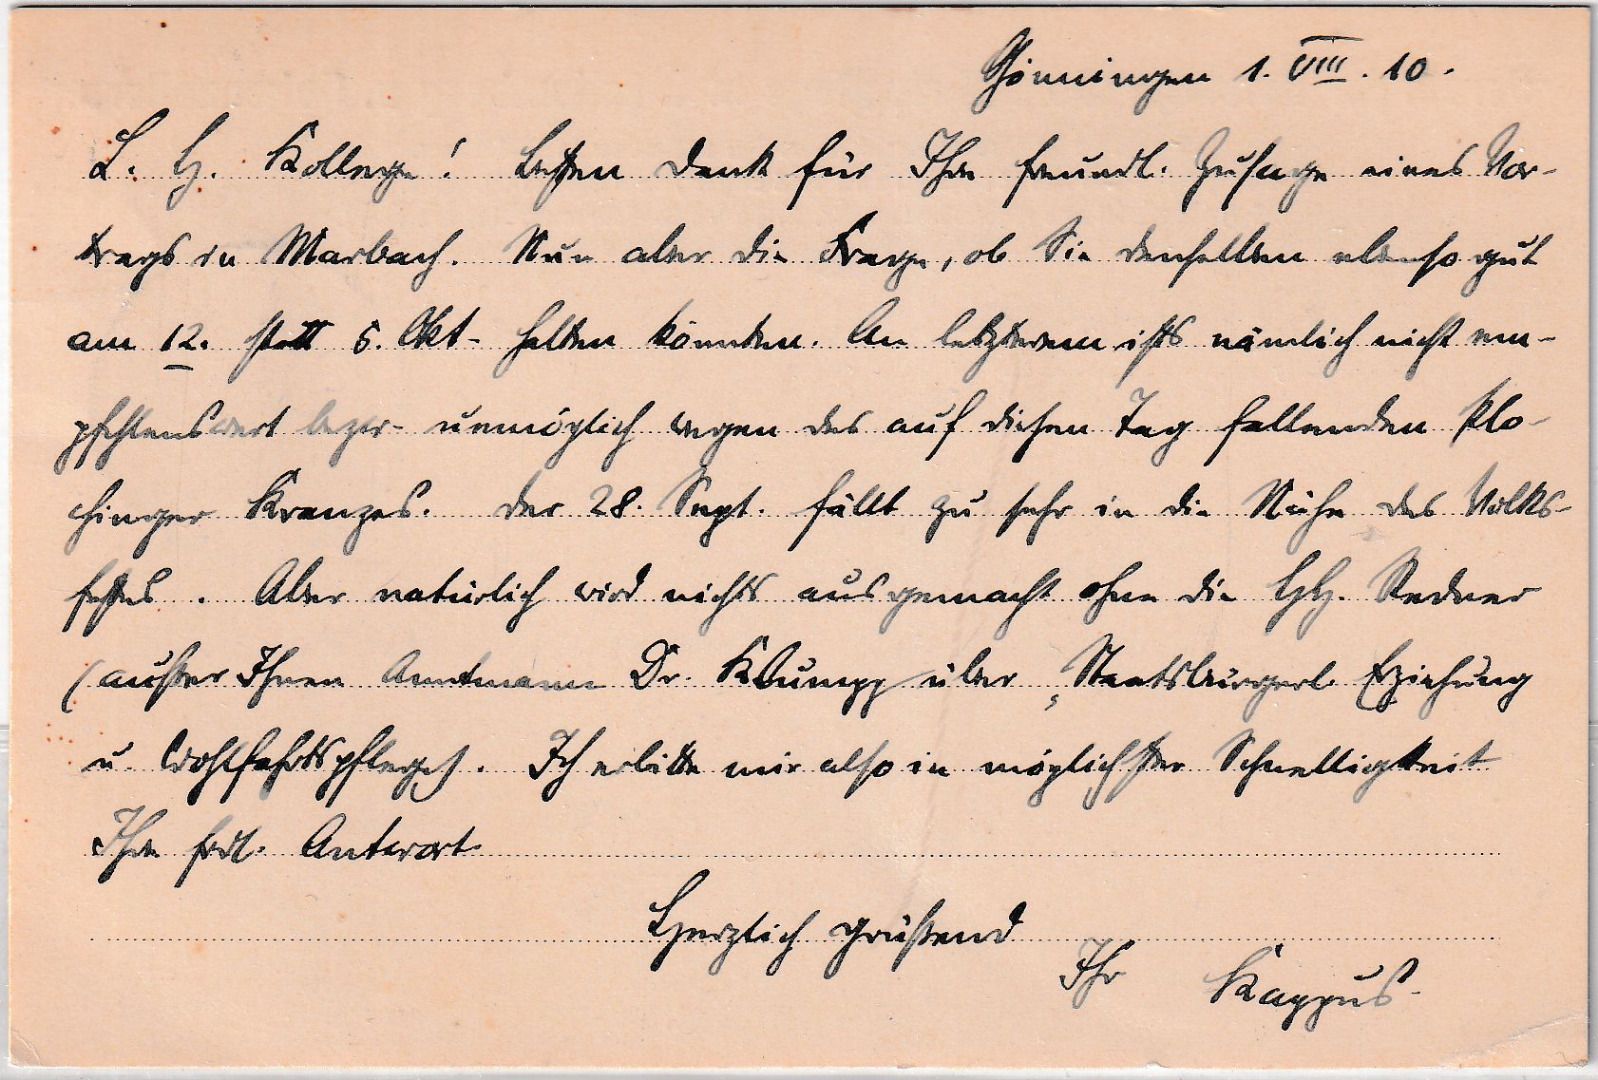 Gönningen 1. VIII. 10.
L. H. Kollege! Besten Dank für Ihre freundl. Zusage eines Vor-
trags in Marbach. Nun aber die Frage, ob Sie denselben ebenso gut
am 12. statt 5. Okt. halten könnten. An letzterem ists nämlich nicht em-
pfehlenswert bezw. unmöglich wegen des auf diesen Tag fallenden Plo-
chinger Kranzes. Der 28. Sept. fällt zu sehr in die Nähe des Volks-
festes. Aber natürlich wird nichts ausgemacht ohne die HH. Redner
(außer Ihnen Amtmann Dr. Klumpp über „Staatsbürgerl. Erziehung
u. Wohlfahrtspflege). Ich erbitte mir also in möglichster Schnelligkeit
Ihre frdl. Antwort.
Herzlich grüßend
Ihr Kappus.